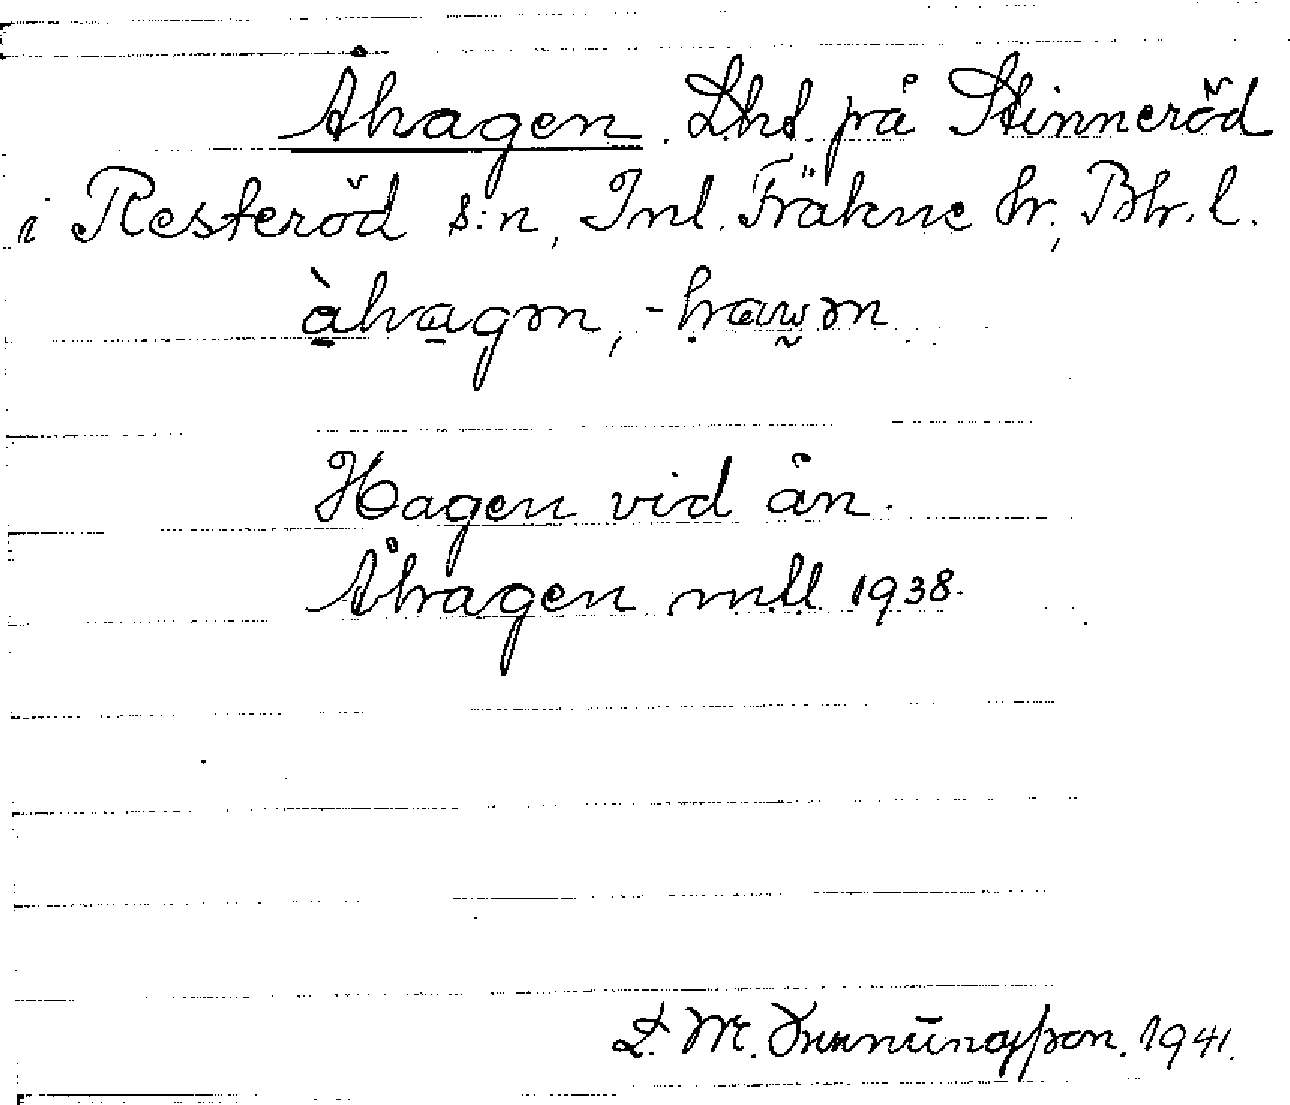 Åhagen. Lht. på Stinneröd
i Resteröd s:n, Inl. Fräkne hr, Bh. l.
àhagən, -hawən
Hagen vid ån.
Åhagen mtl 1938.
L. M. 1941.